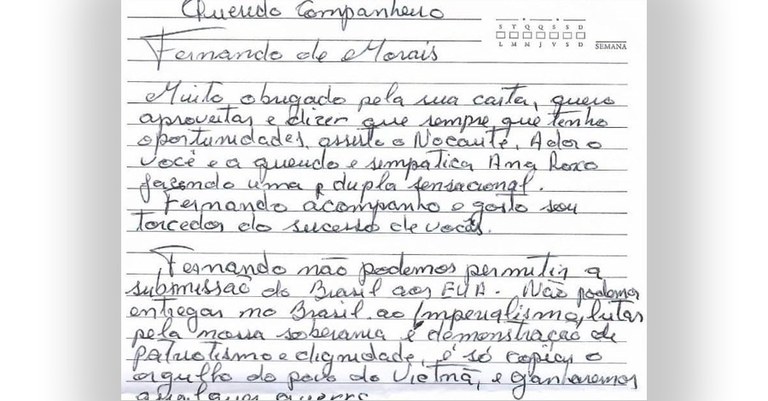 Querido Companheiro
S T Q Q S S D
L M M J V S D
SEMANA
Fernando de Morais
Muito obrigado pela sua carta, quero
aproveitar e dizer que sempre que tenho
oportunidades, assisto o Nocaute, Adoro
você e a querida e simpatica Ana Roxo
fazendo uma dupla sensacional.
Fernando acompanho e gosto sou
torcedor do sucesso de vocês.
Fernando não podemos permitir a
submissão do Brasil aos EUA. Não podemos
entregar no Brasil ao Imperialismo, lutar
pela nossa soberania é demonstração de
patriotismo e dignidade, é só copiar o
orgulho do povo do Vietnã, e ganharemos
guerra